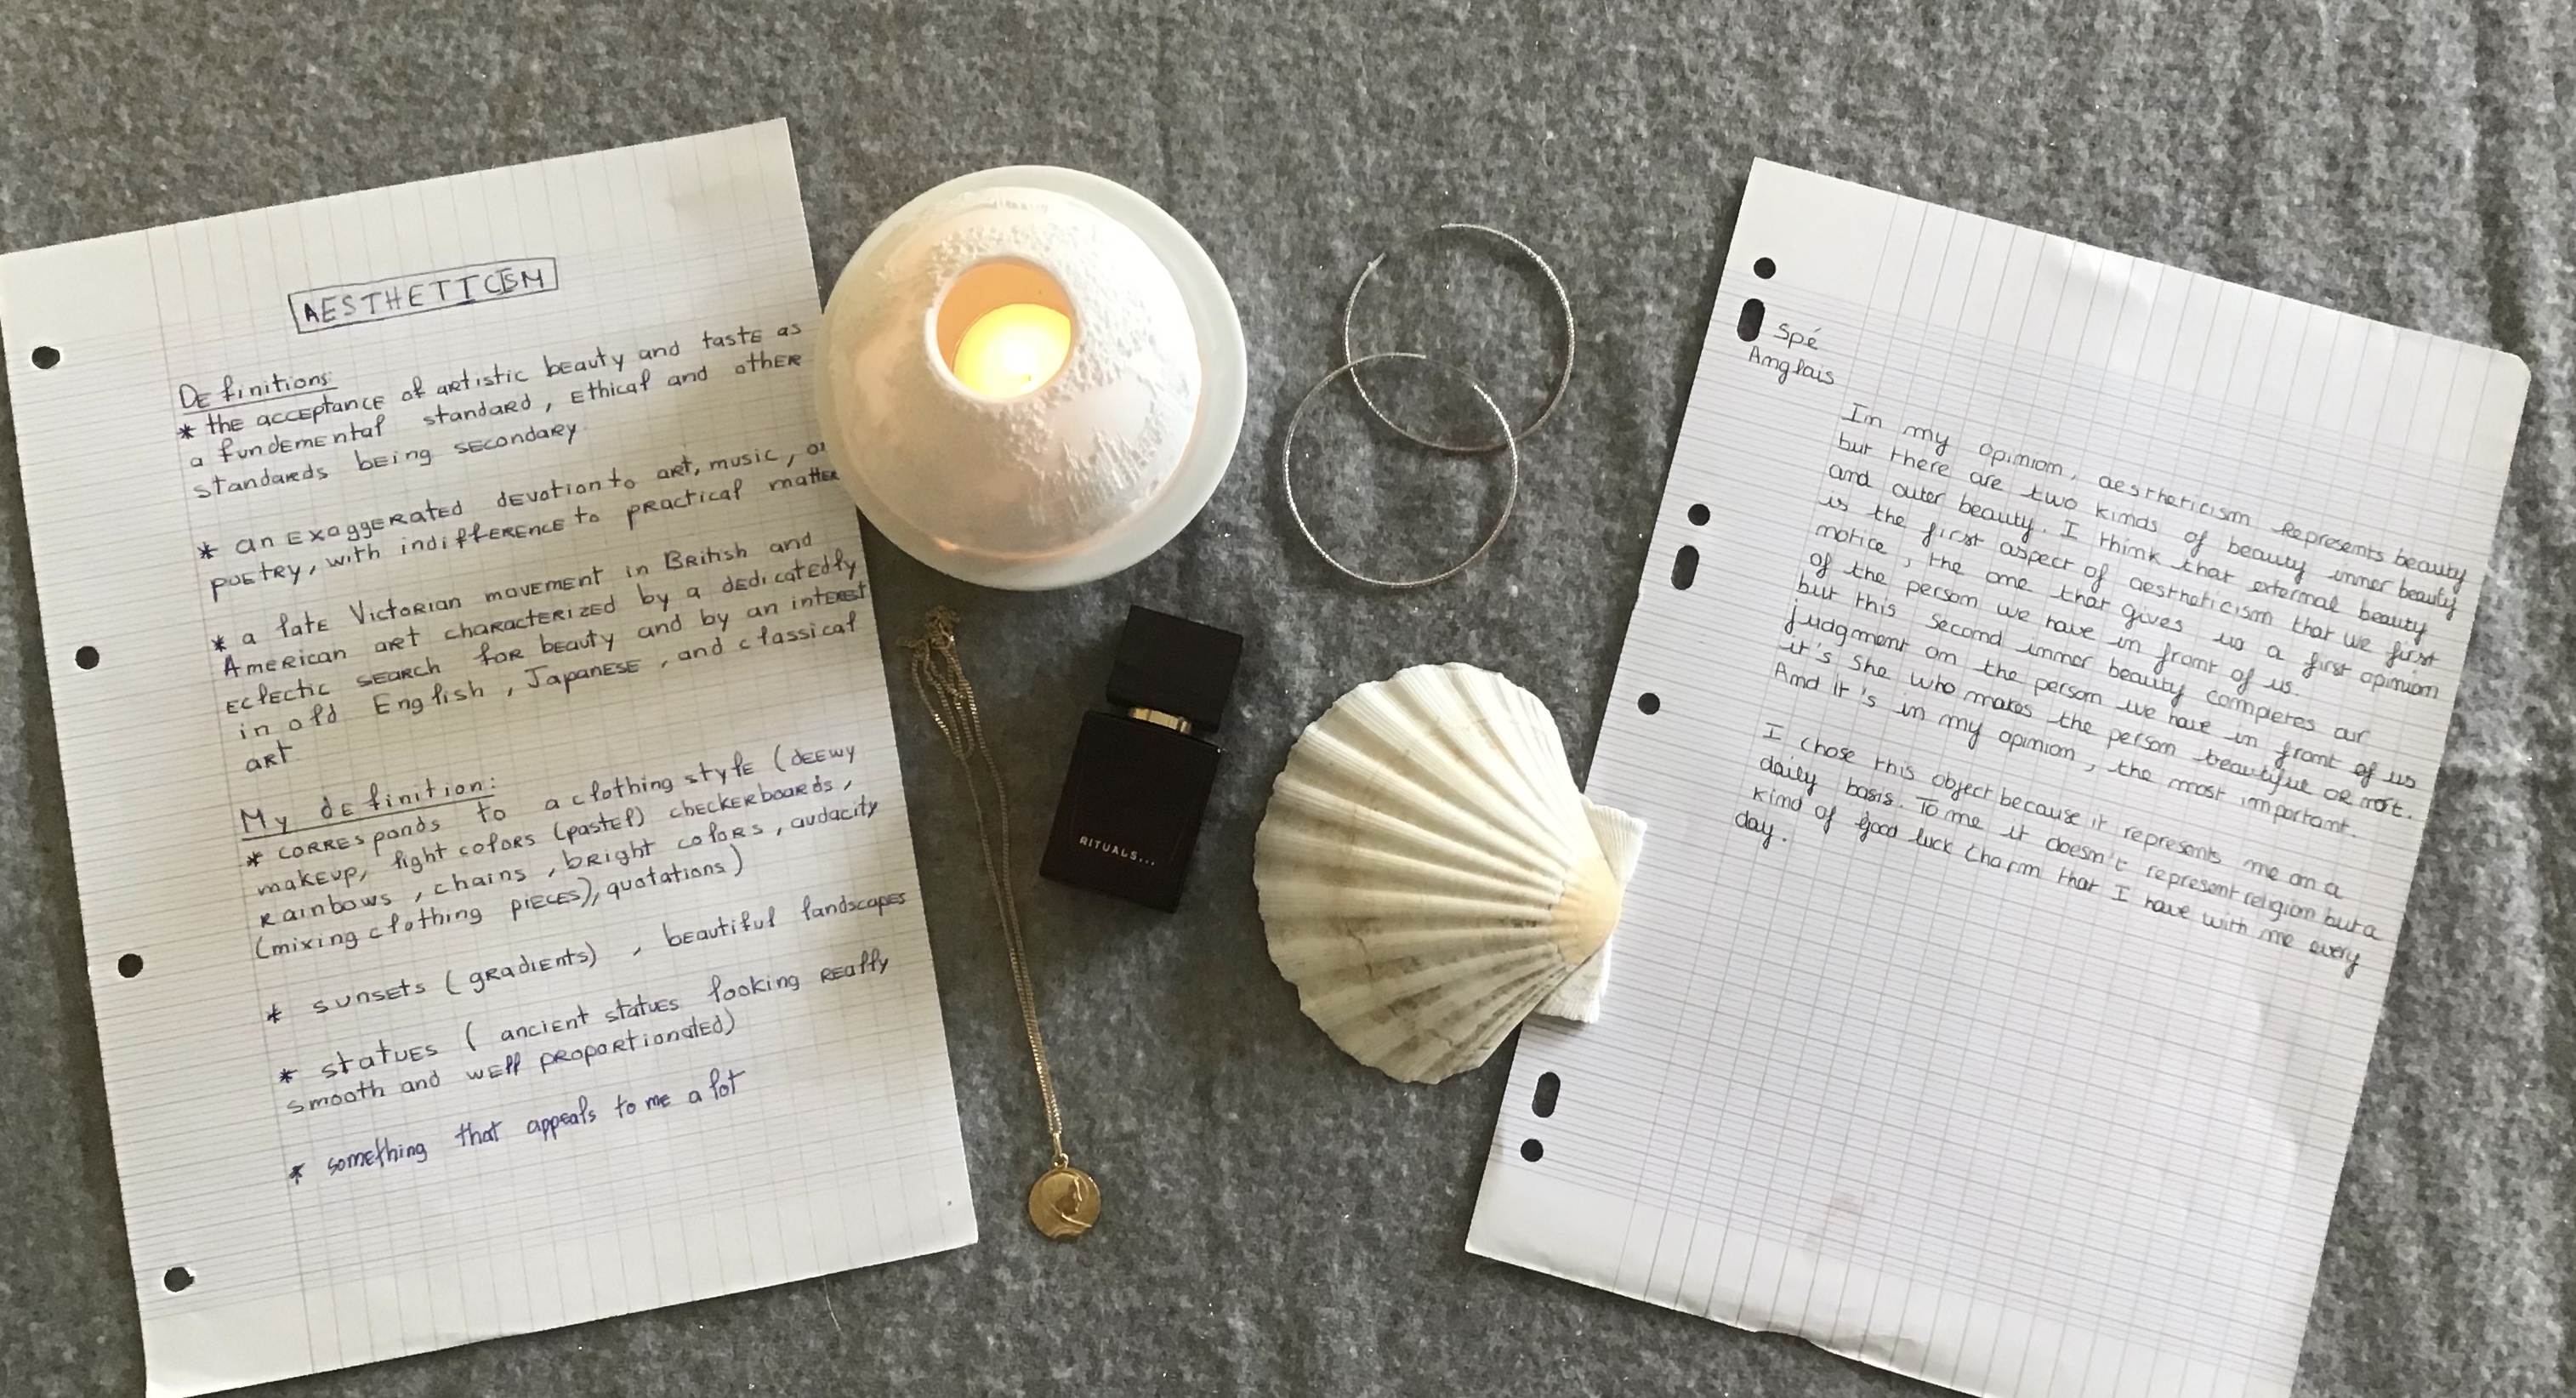 AESTHETICISM
Definitions:
* the acceptance of artistic beauty and taste as
a fundemental standard, Ethical and other
standards being secondary.
* an Exaggerated devotion to art, music, or
poetry, with indifference to practical matter
* a late Victorian movement in British and
American art characterized by a dedicatedly
Eclectic search for beauty and by an interest
in old English, Japanese, and classical
art.
My definition:
* corresponds to a clothing style (deewy
makeup, light colors (pastel) checkerboards,
Rainbows, chains, bright colors, audacity
(mixing clothing pieces), quotations)
* sunsets (gradients), beautiful landscapes
* statues (ancient statues looking really
smooth and well proportionated)
* something that appeals to me a lot
RITUALS...
Spé
Anglais
In my opinion, aestheticism represents beauty
but there are two kinds of beauty inner beauty
and outer beauty. I think that external beauty
is the first aspect of aestheticism that we first
notice, the one that gives us a first opinion
of the person we have in front of us.
but this second inner beauty completes our
judgment on the person we have in front of us
it's she who makes the person beautiful or not.
And it's in my opinion, the most important.
I chose this object because it represents me on a
daily basis. To me it doesn't represent religion but a
kind of good luck charm that I have with me every
day.